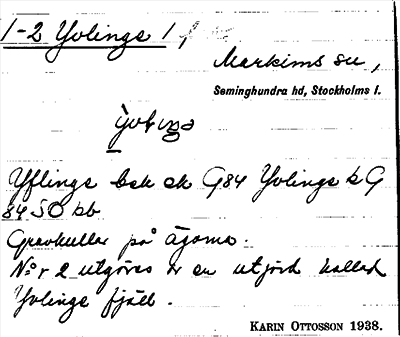 1-2 Yvlinge 1
Markims sn,
Seminghundra hd, Stockholms l.
Yflinge bsk ek G84 Yvlinge k G
84 SO kb
Gravkullar på ägorna.
N:r 2 utgöres är en utjord kallad
Yvlinge fjäll.
KARIN OTTOSSON 1938.